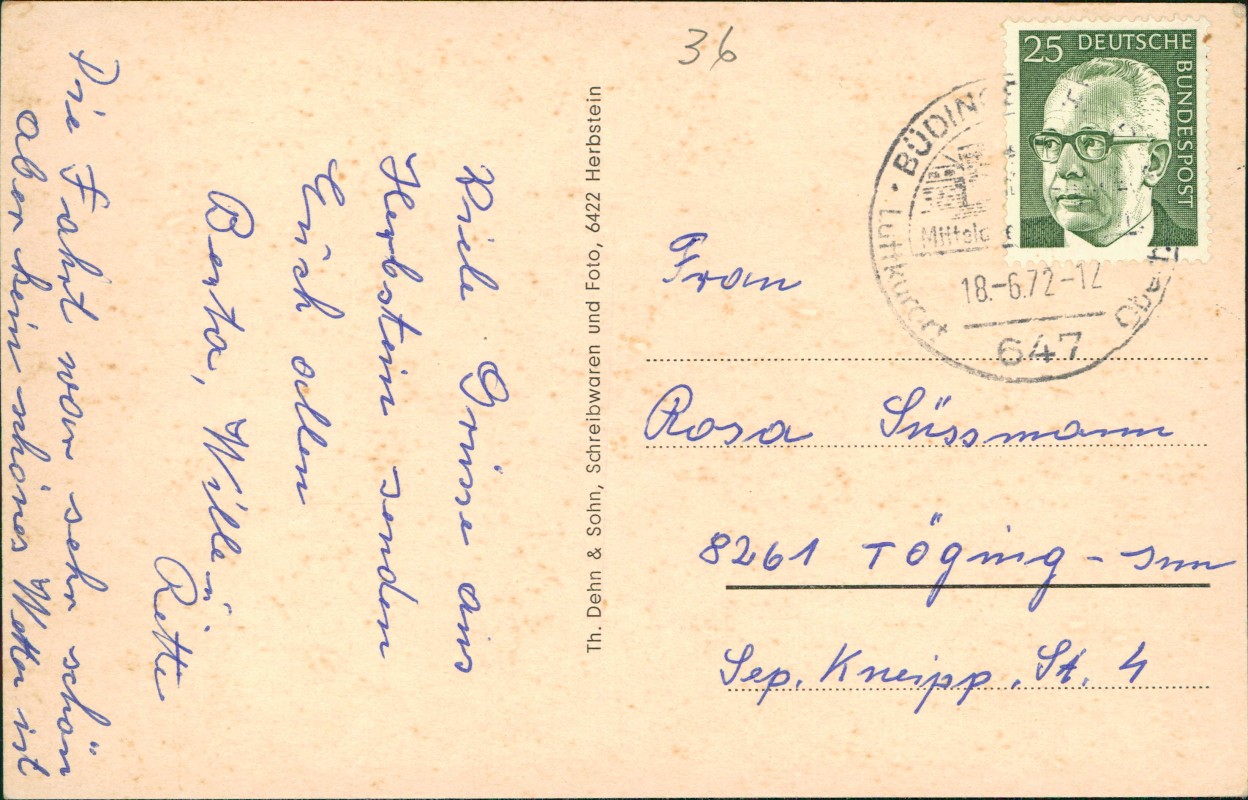 36
25 DEUTSCHE
BUNDESPOST
BÜDIN
Luftkurort
18.-6.72-12
647
Viele Grüsse aus
Herbstein senden
Euch allen
Berta, Wille u
Die Fahrt war sehr schön
aber kein schönes Wetter ist
Th. Dehn & Sohn, Schreibwaren und Foto, 6422 Herbstein
Frau
Rosa Süssmann
8261 Töging - Inn
Sep. Kneipp. St. 4